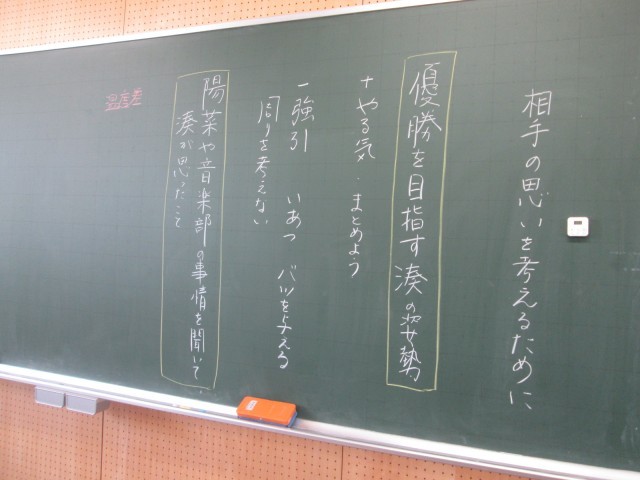 相手の思いを考えるために
優勝を目指す湊の姿勢
+ やる気・まとめよう
- 強引 いあつ バツを与える
周りを考えない
陽菜や音楽部の事情を聞いて、
湊が思ったこと
温度差